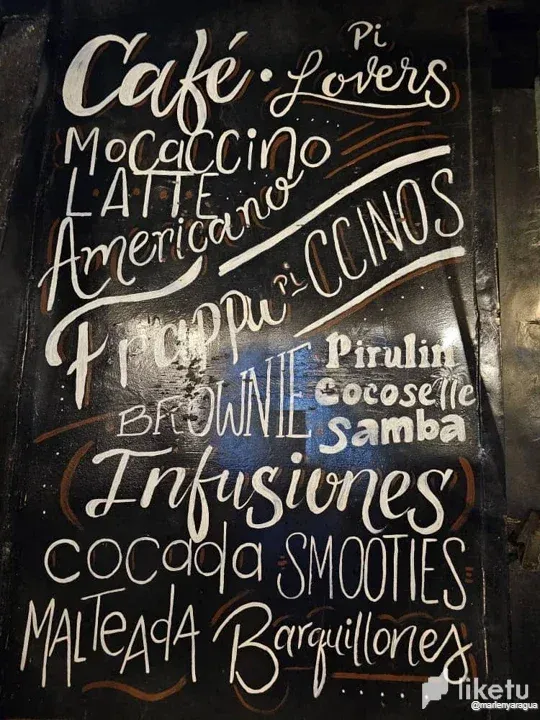 Café · Pi Lovers
Mocaccino
LATTE
Americano
Frappu Pi CCINOS
BROWNIE
Pirulin
Cocosette
Samba
Infusiones
cocada SMOOTIES
MALTEAdA Barquillones
liketu
@marlenyaragua